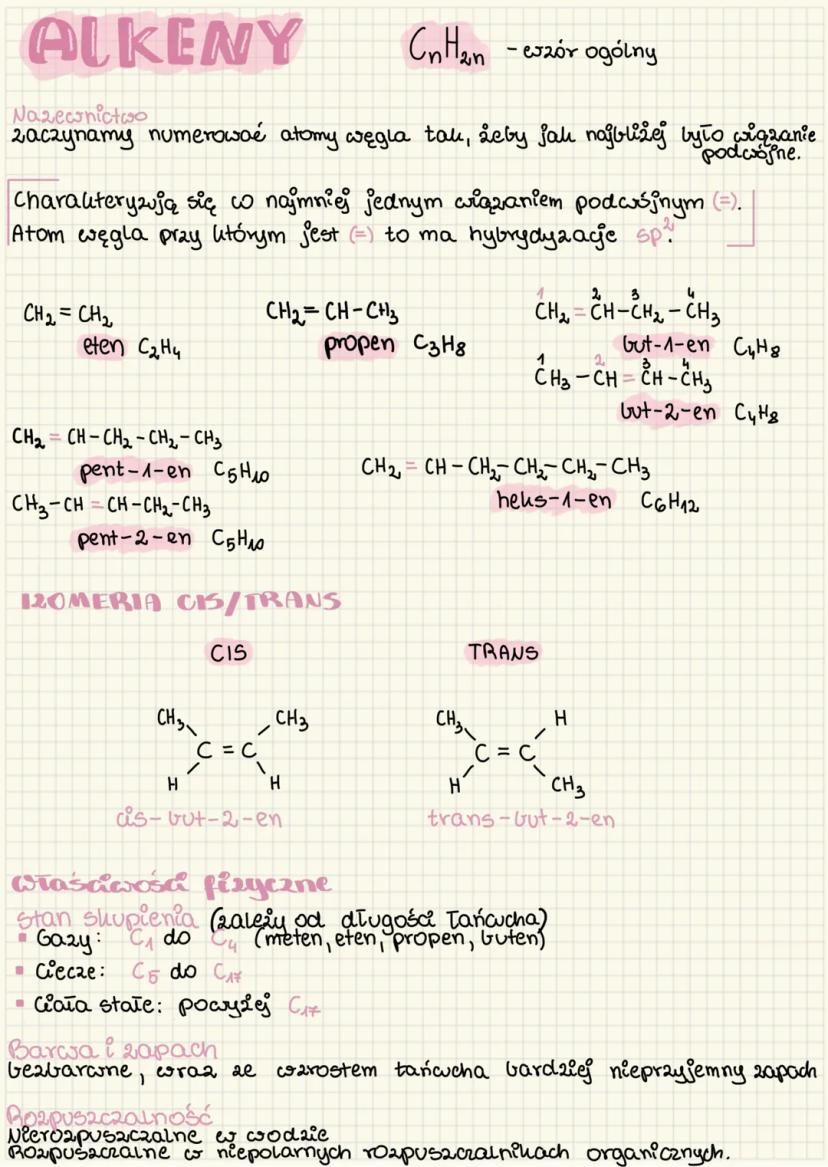 ALKENY
CnH2n - wzór ogólny
Nazewnictwo
zaczynamy numerować atomy węgla tak, żeby jak najbliżej było wiązanie
podwójne.
Charakteryzują się co najmniej jednym wiązaniem podwójnym (=).
Atom węgla przy którym jest (=) to ma hybrydyzacje sp².
CH₂ = CH₂
eten C₂H₄
CH₂ = CH - CH₃
propen C₃H₈
1 2 3 4
CH₂ = CH - CH₂ - CH₃
but-1-en C₄H₈
1 2 3 4
CH₃ - CH = CH - CH₃
but-2-en C₄H₈
CH₂ = CH - CH₂ - CH₂ - CH₃
pent-1-en C₅H₁₀
CH₃ - CH = CH - CH₂ - CH₃
pent-2-en C₅H₁₀
CH₂ = CH - CH₂ - CH₂ - CH₂ - CH₃
heks-1-en C₆H₁₂
IZOMERIA CIS/TRANS
CIS
CH₃ CH₃
C = C
H H
cis-but-2-en
TRANS
CH₃ H
C = C
H CH₃
trans-but-2-en
właściwości fizyczne
stan skupienia (zależy od długości łańcucha)
▪ Gazy: C₁ do C₄ (meten, eten, propen, buten)
▪ Ciecze: C₅ do C₁₇
▪ Ciała stałe: powyżej C₁₇
Barwa i zapach
bezbarwne, wraz ze wzrostem łańcucha bardziej nieprzyjemny zapach
Rozpuszczalność
Nierozpuszczalne w wodzie
Rozpuszczalne w niepolarnych rozpuszczalnikach organicznych.